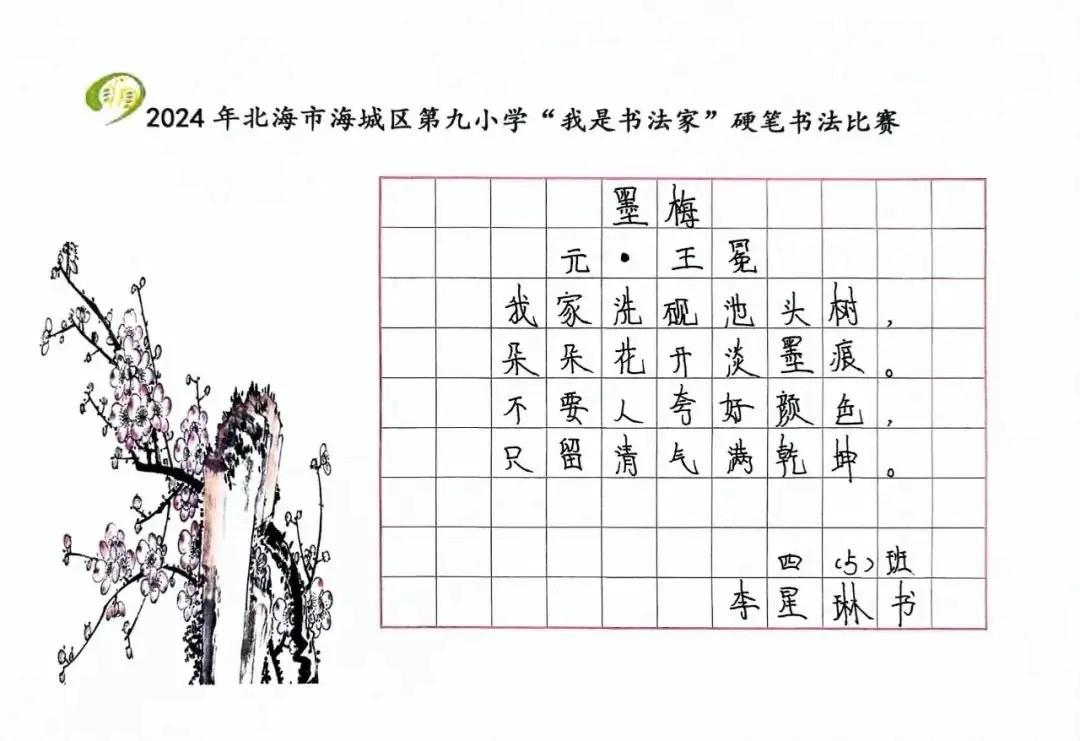 2024年北海市海城区第九小学“我是书法家”硬笔书法比赛
墨梅
元·王冕
我家洗砚池头树,
朵朵花开淡墨痕。
不要人夸好颜色,
只留清气满乾坤。
四(5)班
李星琳书